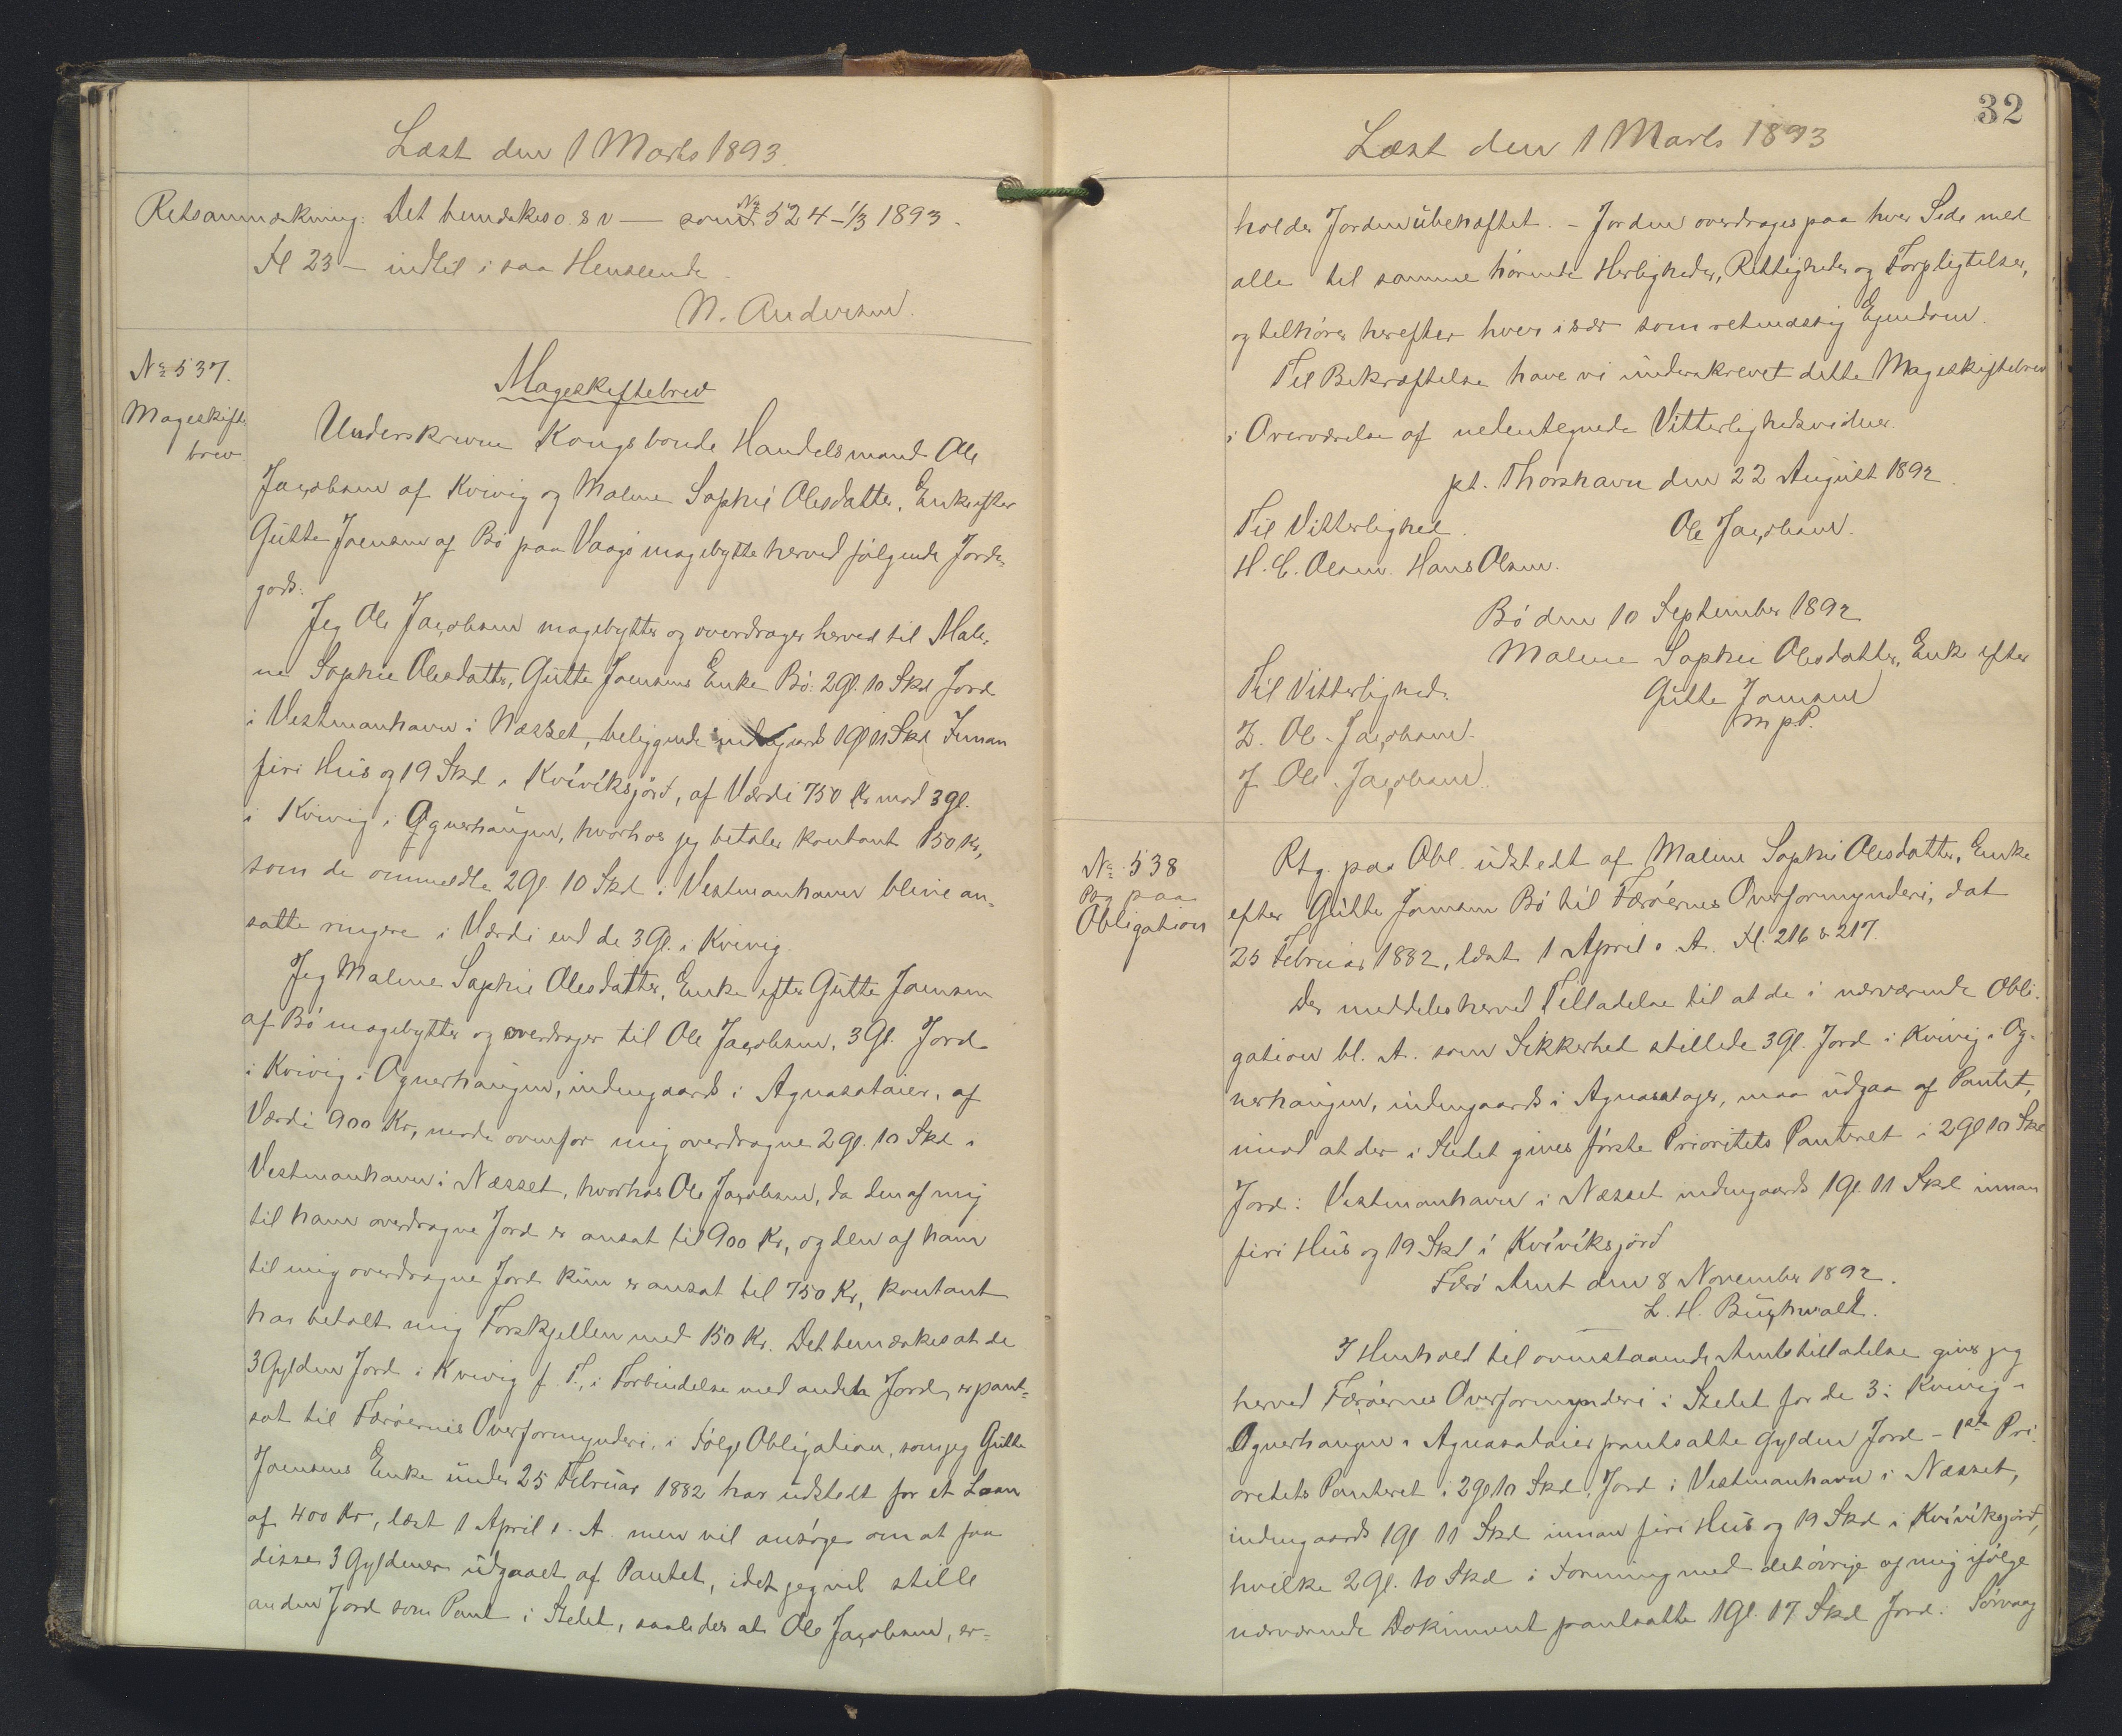 Læst den 1 Marts 1893.
Retsanmærkning: Det bemærkes o. s v — som No 524 – 1/3 1893.
Fl 23 — indtil i saa Henseende.
N. Andersen.
No 537.
Mageskifte
brev.
Mageskiftebrev
Underskrevne Kongsbonde Handelsmand Ole
Jacobsen af Kvivig og Malene Sophie Olesdatter, Enke efter
Gutte Joensen af Bø paa Vaagø magebytte herved følgende Jorde-
gods:
Jeg Ole Jacobsen magebytter og overdrager herved til Male-
ne Sophie Olesdatter, Gutte Joensens Enke Bø: 2 Gl. 10 Skd Jord
i Vestmanhavn i Næsset, beliggende indengards 1 Gl 11 Skd Innan
firi Hús og 19 Skd i Kvívíksjørð, af Værdi 750 Kr mod 3 Gl.
i Kvivig i Ognerhaugen, hvorhos jeg betaler kontant 150 Kr,
som de ommeldte 2 Gl 10 Skd i Vestmanhavn blive an-
satte ringere i Værdi end de 3 Gl. i Kvivig.
Jeg Malene Sophie Olesdatter, Enke efter Gutte Joensen
af Bø magebytter og overdrager til Ole Jacobsen, 3 Gl. Jord
i Kvivig i Ognerhaugen, indengaards i Agnasataier, af
Værdi 900 Kr, mod ovenfor mig overdragne 2 Gl. 10 Skd i
Vestmanhavn i Næsset, hvorhos Ole Jacobsen, da den af mig
til ham overdragne Jord er ansat til 900 Kr, og den af ham
til mig overdragne Jord kun er ansat til 750 Kr, kontant
har betalt mig Forskjellen med 150 Kr. Det bemærkes at de
3 Gylden Jord i Kvivig f. T., i Forbindelse med anden Jord, er pant-
sat til Færøernes Overformynderi, i Følge Obligation, som jeg Gutte
Joensens Enke under 25 Februar 1882 har udstedt for et Laan
af 400 Kr, læst 1 April s. A. men vil ansøge om at faa
disse 3 Gyldener udgaaet af Pantet, idet jeg vil stille
anden Jord som Pant i Stedet, saaledes at Ole Jacobsen, er-
32
Læst den 1 Marts 1893
holder Jorden ubehæftet. – Jorden overdrages paa hver Side med
alle til samme hørende Herligheder, Rettigheder og Forpligtelser,
og tilhører herefter hver især som retmæssig Ejendom.
Til Bekræftelse have vi underskrevet dette Mageskiftebrev
i Overværelse af nedentegnede Vitterlighedsvidner.
pt. Thorshavn den 22 August 1892.
Til Vitterlighed. Ole Jacobsen.
H. C. Olsen. Hans Olsen.
Bø den 10 September 1892
Malene Sophie Olesdatter, Enke efter
Til Vitterlighed. Gutte Joensen
m p P.
D. Ole. Jacobsen.
J. Ole. Jacobsen.
No 538
Ptg paa
Obligation
Ptg. paa Obl. udstedt af Malene Sophie Olesdatter, Enke
efter Gutte Joensen Bø til Færøernes Overformynderi, dat
25 Februar 1882, læst 1 April s. A. Fl. 216 & 217.
Der meddeles herved Tilladelse til at de i nærværende Obli-
gation bl. A. som Sikkerhed stillede 3 Gl. Jord i Kvivig i Og-
nerhaugen, indengaards i Agnasatager, maa udgaa af Pantet,
imod at der i Stedet gives første Prioritets Panteret i 2 Gl 10 Skd
Jord i Vestmanhavn i Næsset indengaards 1 Gl. 11 Skd innan
firi Hús og 19 Skd í Kvívíksjørð
Færø Amt den 8 November 1892.
L. H. Buchwaldt.
I Henhold til ovenstaaende Amtstilladelse giver jeg
herved Færøernes Overformynderi i Stedet for de 3 i Kvivig i
Ognerhaugen i Agnasataier pantsatte Gylden Jord – 1ste Pri-
oritets Panteret i 2 Gl 10 Skd Jord i Vestmanhavn i Næsset,
indengaards 1 Gl 11 Skd innan firi Hús og 19 Skd i Kvívíksjørð,
hvilke 2 Gl. 10 Skd i Forening med det øvrige af mig ifølge
nærværende Dokument pantsatte 1 Gl. 17 Skd Jord i Sørvaag